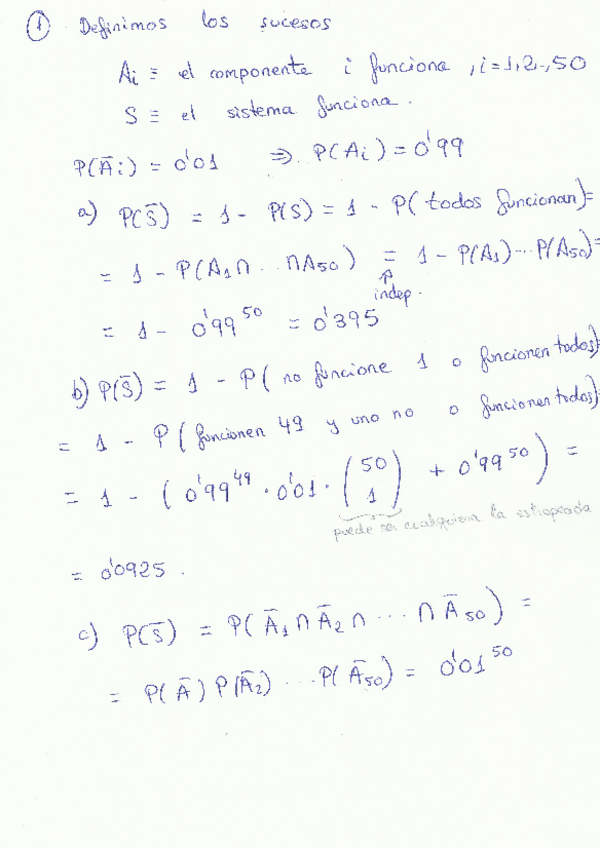 ① Definimos los sucesos
Ai ≡ el componente i funciona, i=1,2..,50
S ≡ el sistema funciona.
P(Āi) = 0'01 ⇒ P(Ai) = 0'99
a) P(S̄) = 1 - P(S) = 1 - P(todos funcionan) =
= 1 - P(A1 ∩ ... ∩ A50) = 1 - P(A1) ... P(A50) =
↑
indep.
= 1 - 0'99^50 = 0'395
b) P(S̄) = 1 - P(no funcione 1 o funcionen todos)
= 1 - P(funcionen 49 y uno no o funcionen todos)
= 1 - (0'99^49 · 0'01 · (50 1) + 0'99^50) =
puede ser cualquiera la estropeada
= 0'0925.
c) P(S̄) = P(Ā1 ∩ Ā2 ∩ ... ∩ Ā50) =
= P(Ā) P(Ā2) ... P(Ā50) = 0'01^50